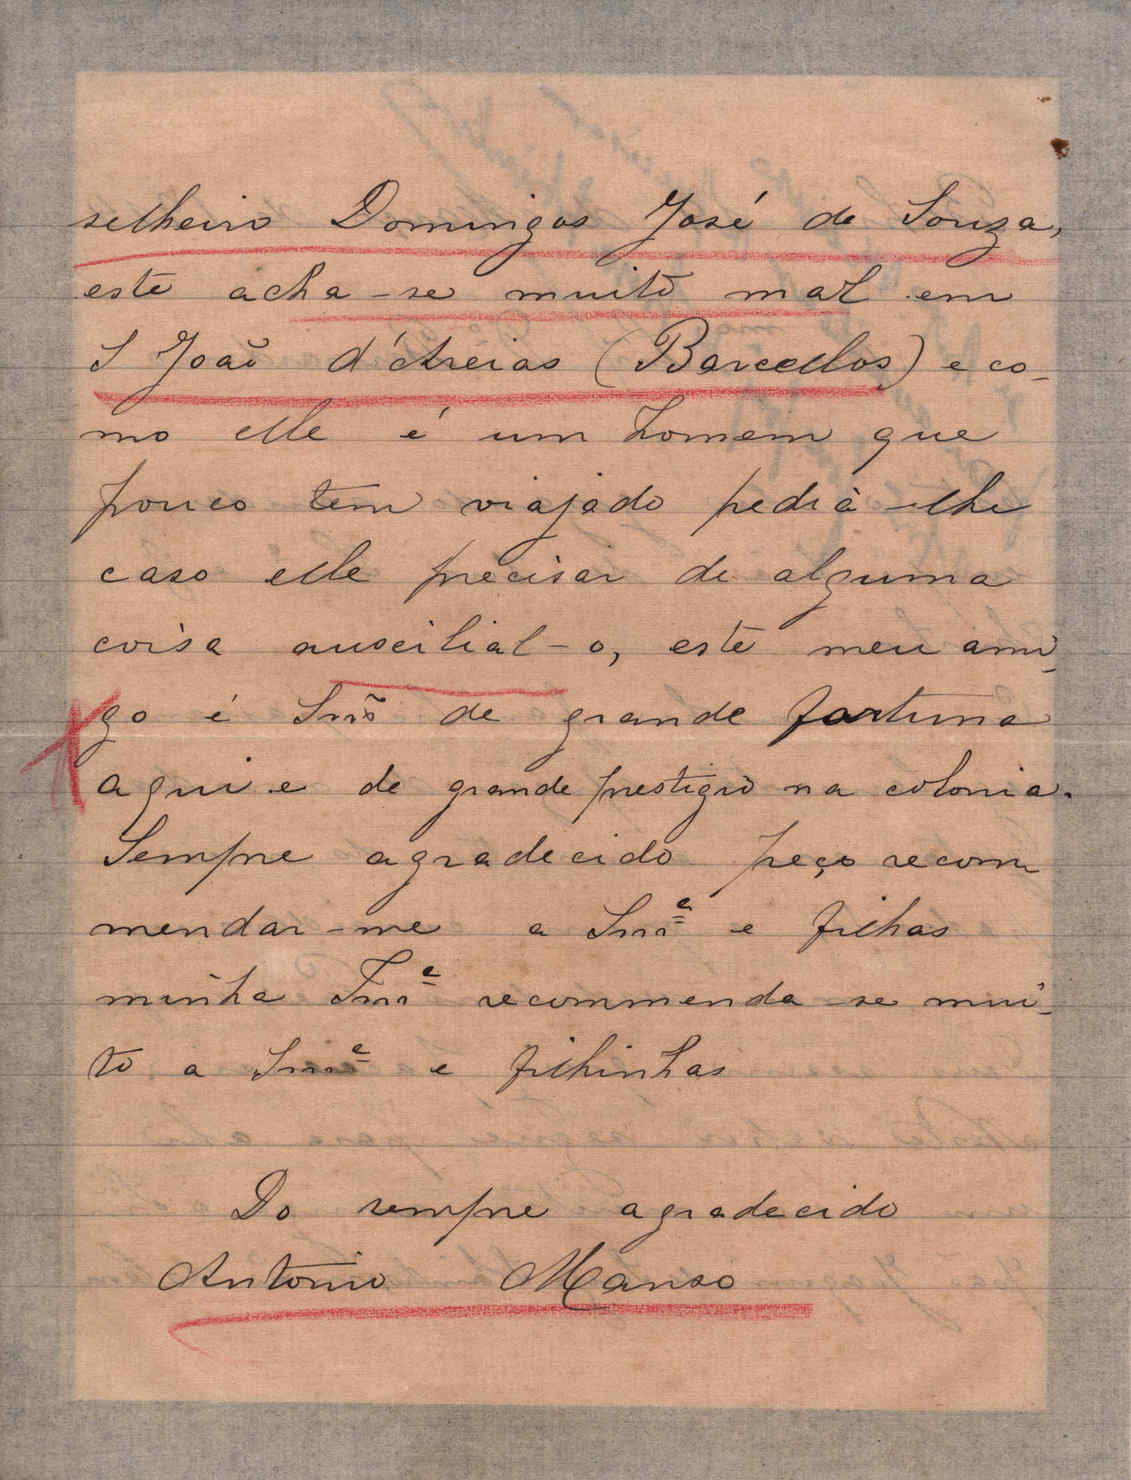 selheiro Domingos José de Souza,
este acha-se muito mal em
S João d'Areias (Barcellos) e co-
mo elle é um homem que
pouco tem viajado pedia-lhe
caso elle precisar de alguma
coisa auscilial-o, este meu ami-
go é Snr̃ de grande fortuna
aqui e de grande prestigio na colonia.
Sempre agradecido peço recom
mendar-me a Snrª e filhas
minha Fmª recommenda-se mui-
to a Snrª e filhinhas
Do sempre agradecido
Antonio Manso